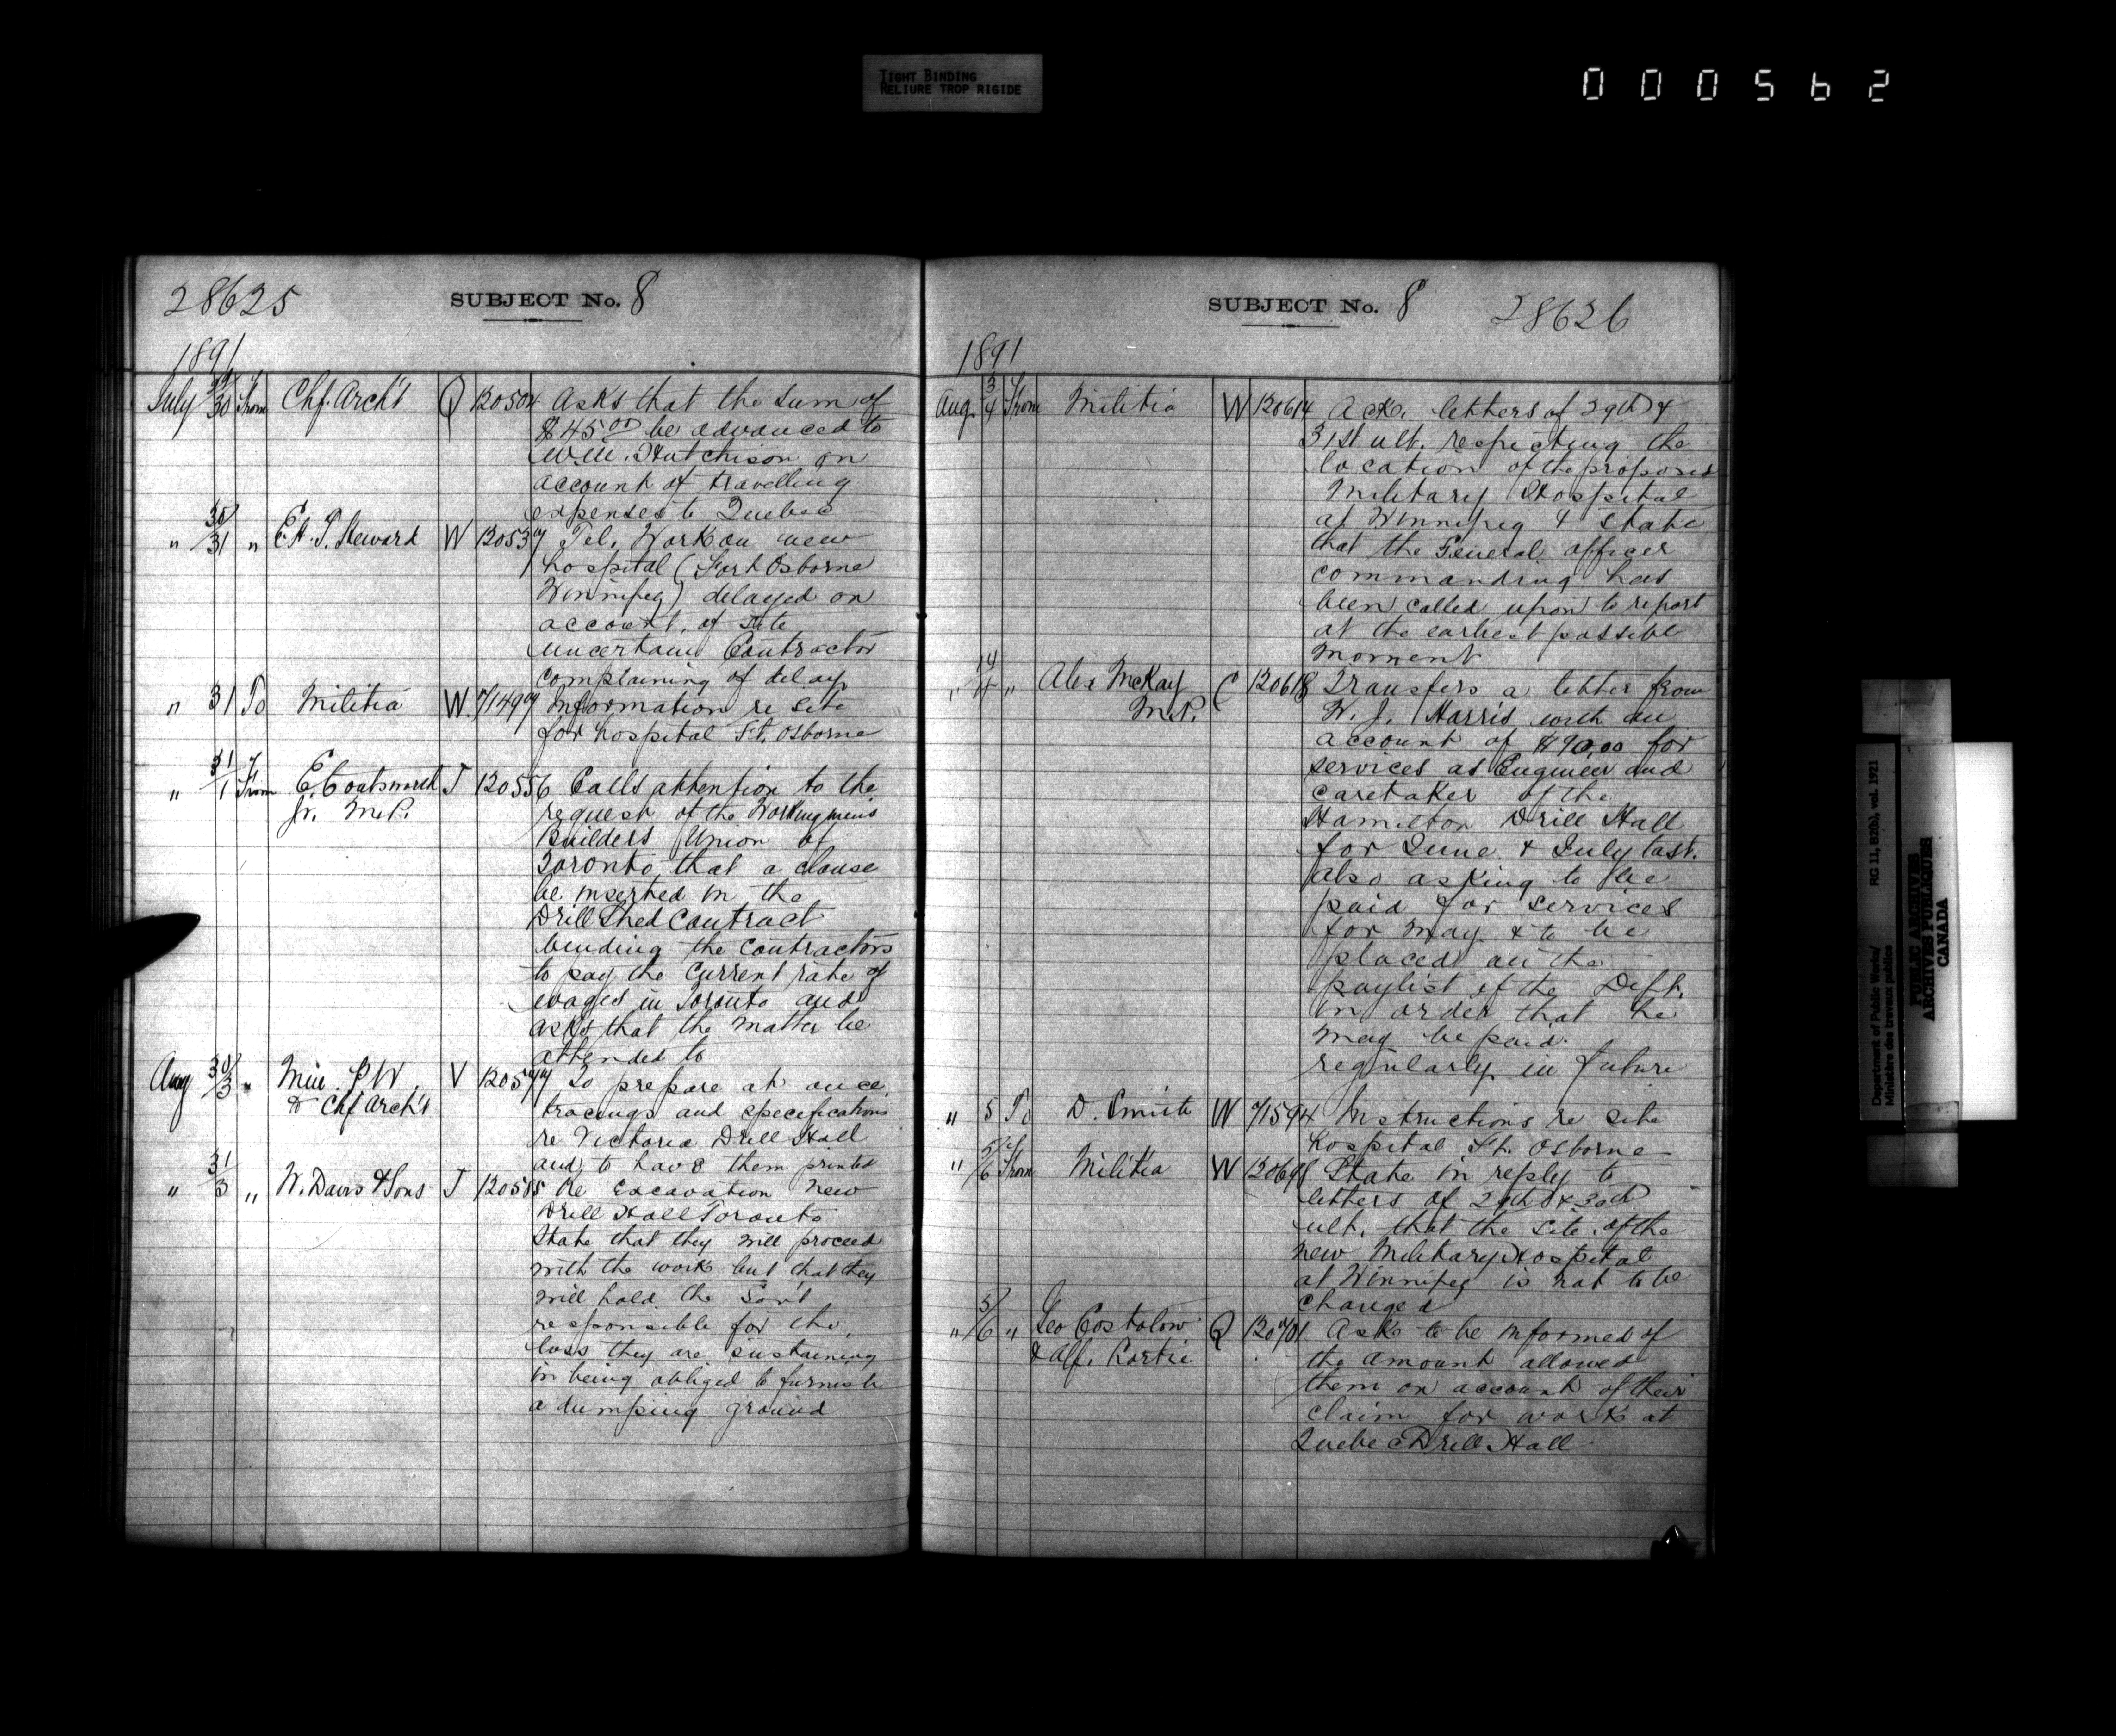 TIGHT BINDING
RELIURE TROP RIGIDE
000562
28625 SUBJECT No. 8
1891
July 30 From Chf. Arch't Q 120504 Asks that the sum of
$45.00 be advanced to
Wm. Hutchison on
account of travelling
expenses to Quebec
" 30/31 " E.H.T. Heward W 120537 Tel. Work on new
hospital (Fort Osborne
Winnipeg) delayed on
account of site
uncertain Contractor
complaining of delay
" 31 To Militia W. 71499 Information re site
for hospital Ft. Osborne
" 31/1 From E. Coatsworth J 120556 Calls attention to the
Jr. M.P. request of the Workingmen's
Builders Union of
Toronto that a clause
be inserted in the
Drill Shed Contract
binding the contractors
to pay the current rate of
wages in Toronto and
asks that the matter be
attended to
Aug 30/3 " Min. P.W. V 120577 To prepare at once
& Chf Arch't tracings and specifications
re Victoria Drill Hall
and to have them printed
" 31/3 " W. Davis & Sons J 120585 Re Excavation new
Drill Hall Toronto
State that they will proceed
with the work but that they
will hold the Gov't
responsible for the
loss they are sustaining
in being obliged to furnish
a dumping ground
SUBJECT No. 8 28626
1891
Aug. 3/4 From Militia W 120614 Ack. letters of 29th &
31st ult. respecting the
location of the proposed
Military Hospital
at Winnipeg & state
that the General officer
commanding has
been called upon to report
at the earliest possible
moment
" " Alex McKay C 120618 Transfers a letter from
M.P. W. J. Harris with an
account of $90.00 for
services as Engineer and
caretaker of the
Hamilton Drill Hall
for June & July last.
also asking to be
paid for services
for May & to be
placed on the
paylist of the Dept.
in order that he
may be paid
regularly in future
" 5 To D. Smith W 71594 Instructions re site
hospital Ft. Osborne
" 5/6 From Militia W 120698 State in reply to
letters of 29th & 30th
ult. that the site of the
new Military Hospital
at Winnipeg is not to be
changed
" 5/6 " Geo Costolow Q 120701 Ask to be informed of
& Alf. Lortie the amount allowed
them on account of their
claim for work at
Quebec Drill Hall
Department of Public Works/
Ministère des travaux publics
RG 11, B2(b), vol. 1921
PUBLIC ARCHIVES
ARCHIVES PUBLIQUES
CANADA